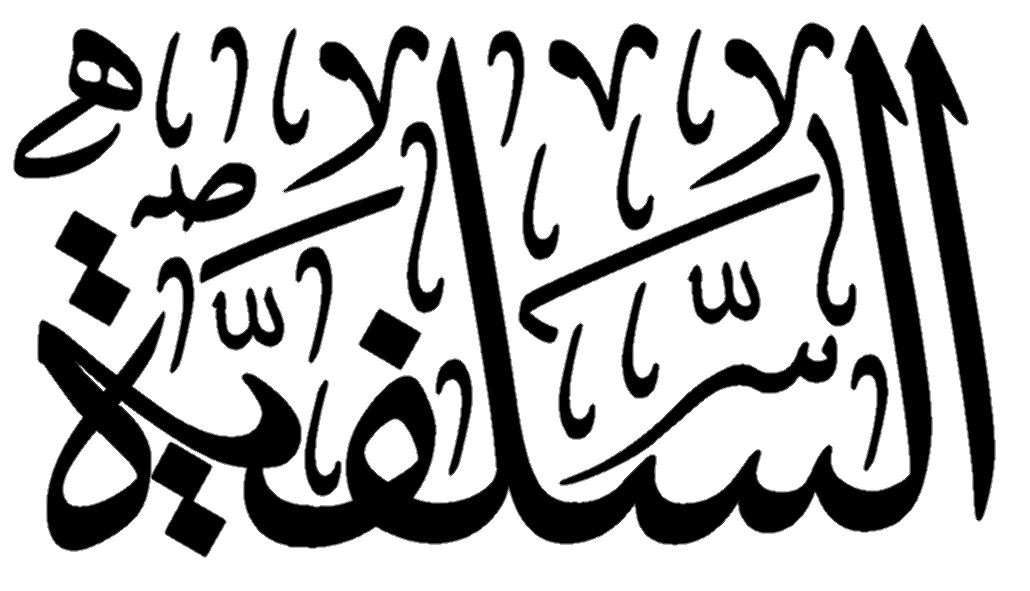 السلفية